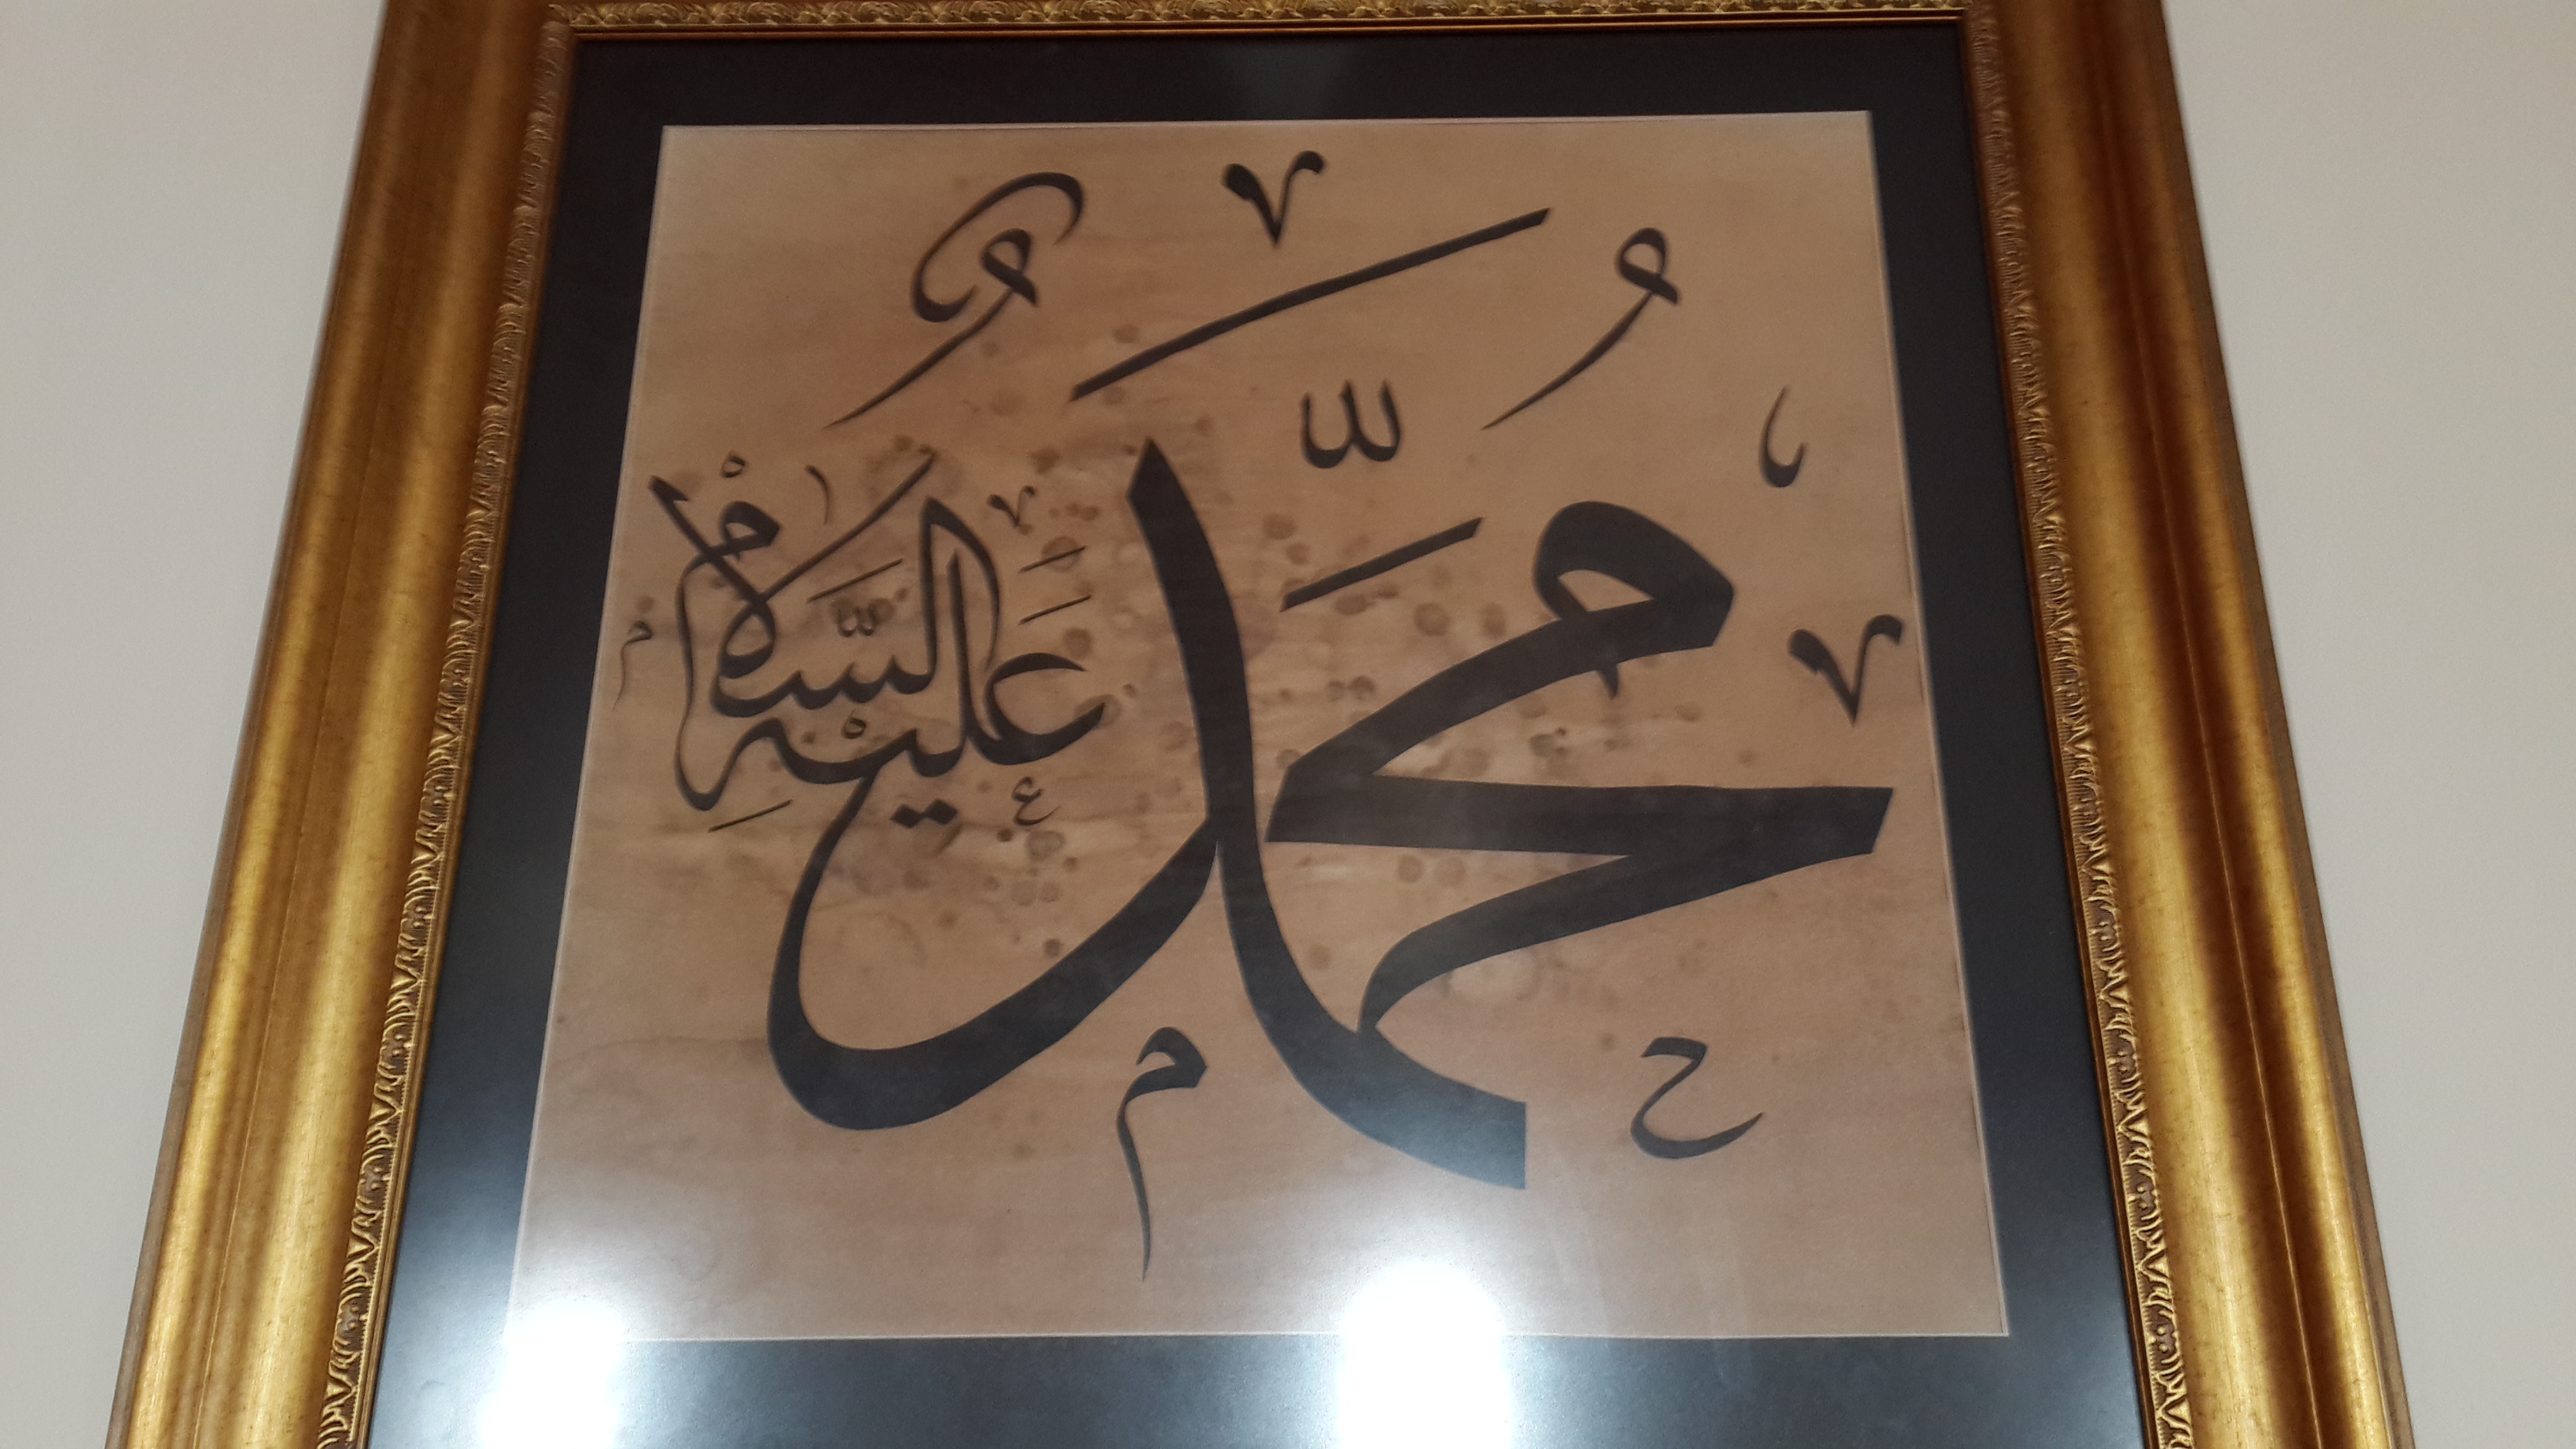 مُحَمَّدٌ
عَلَيْهِ السَّلَامْ